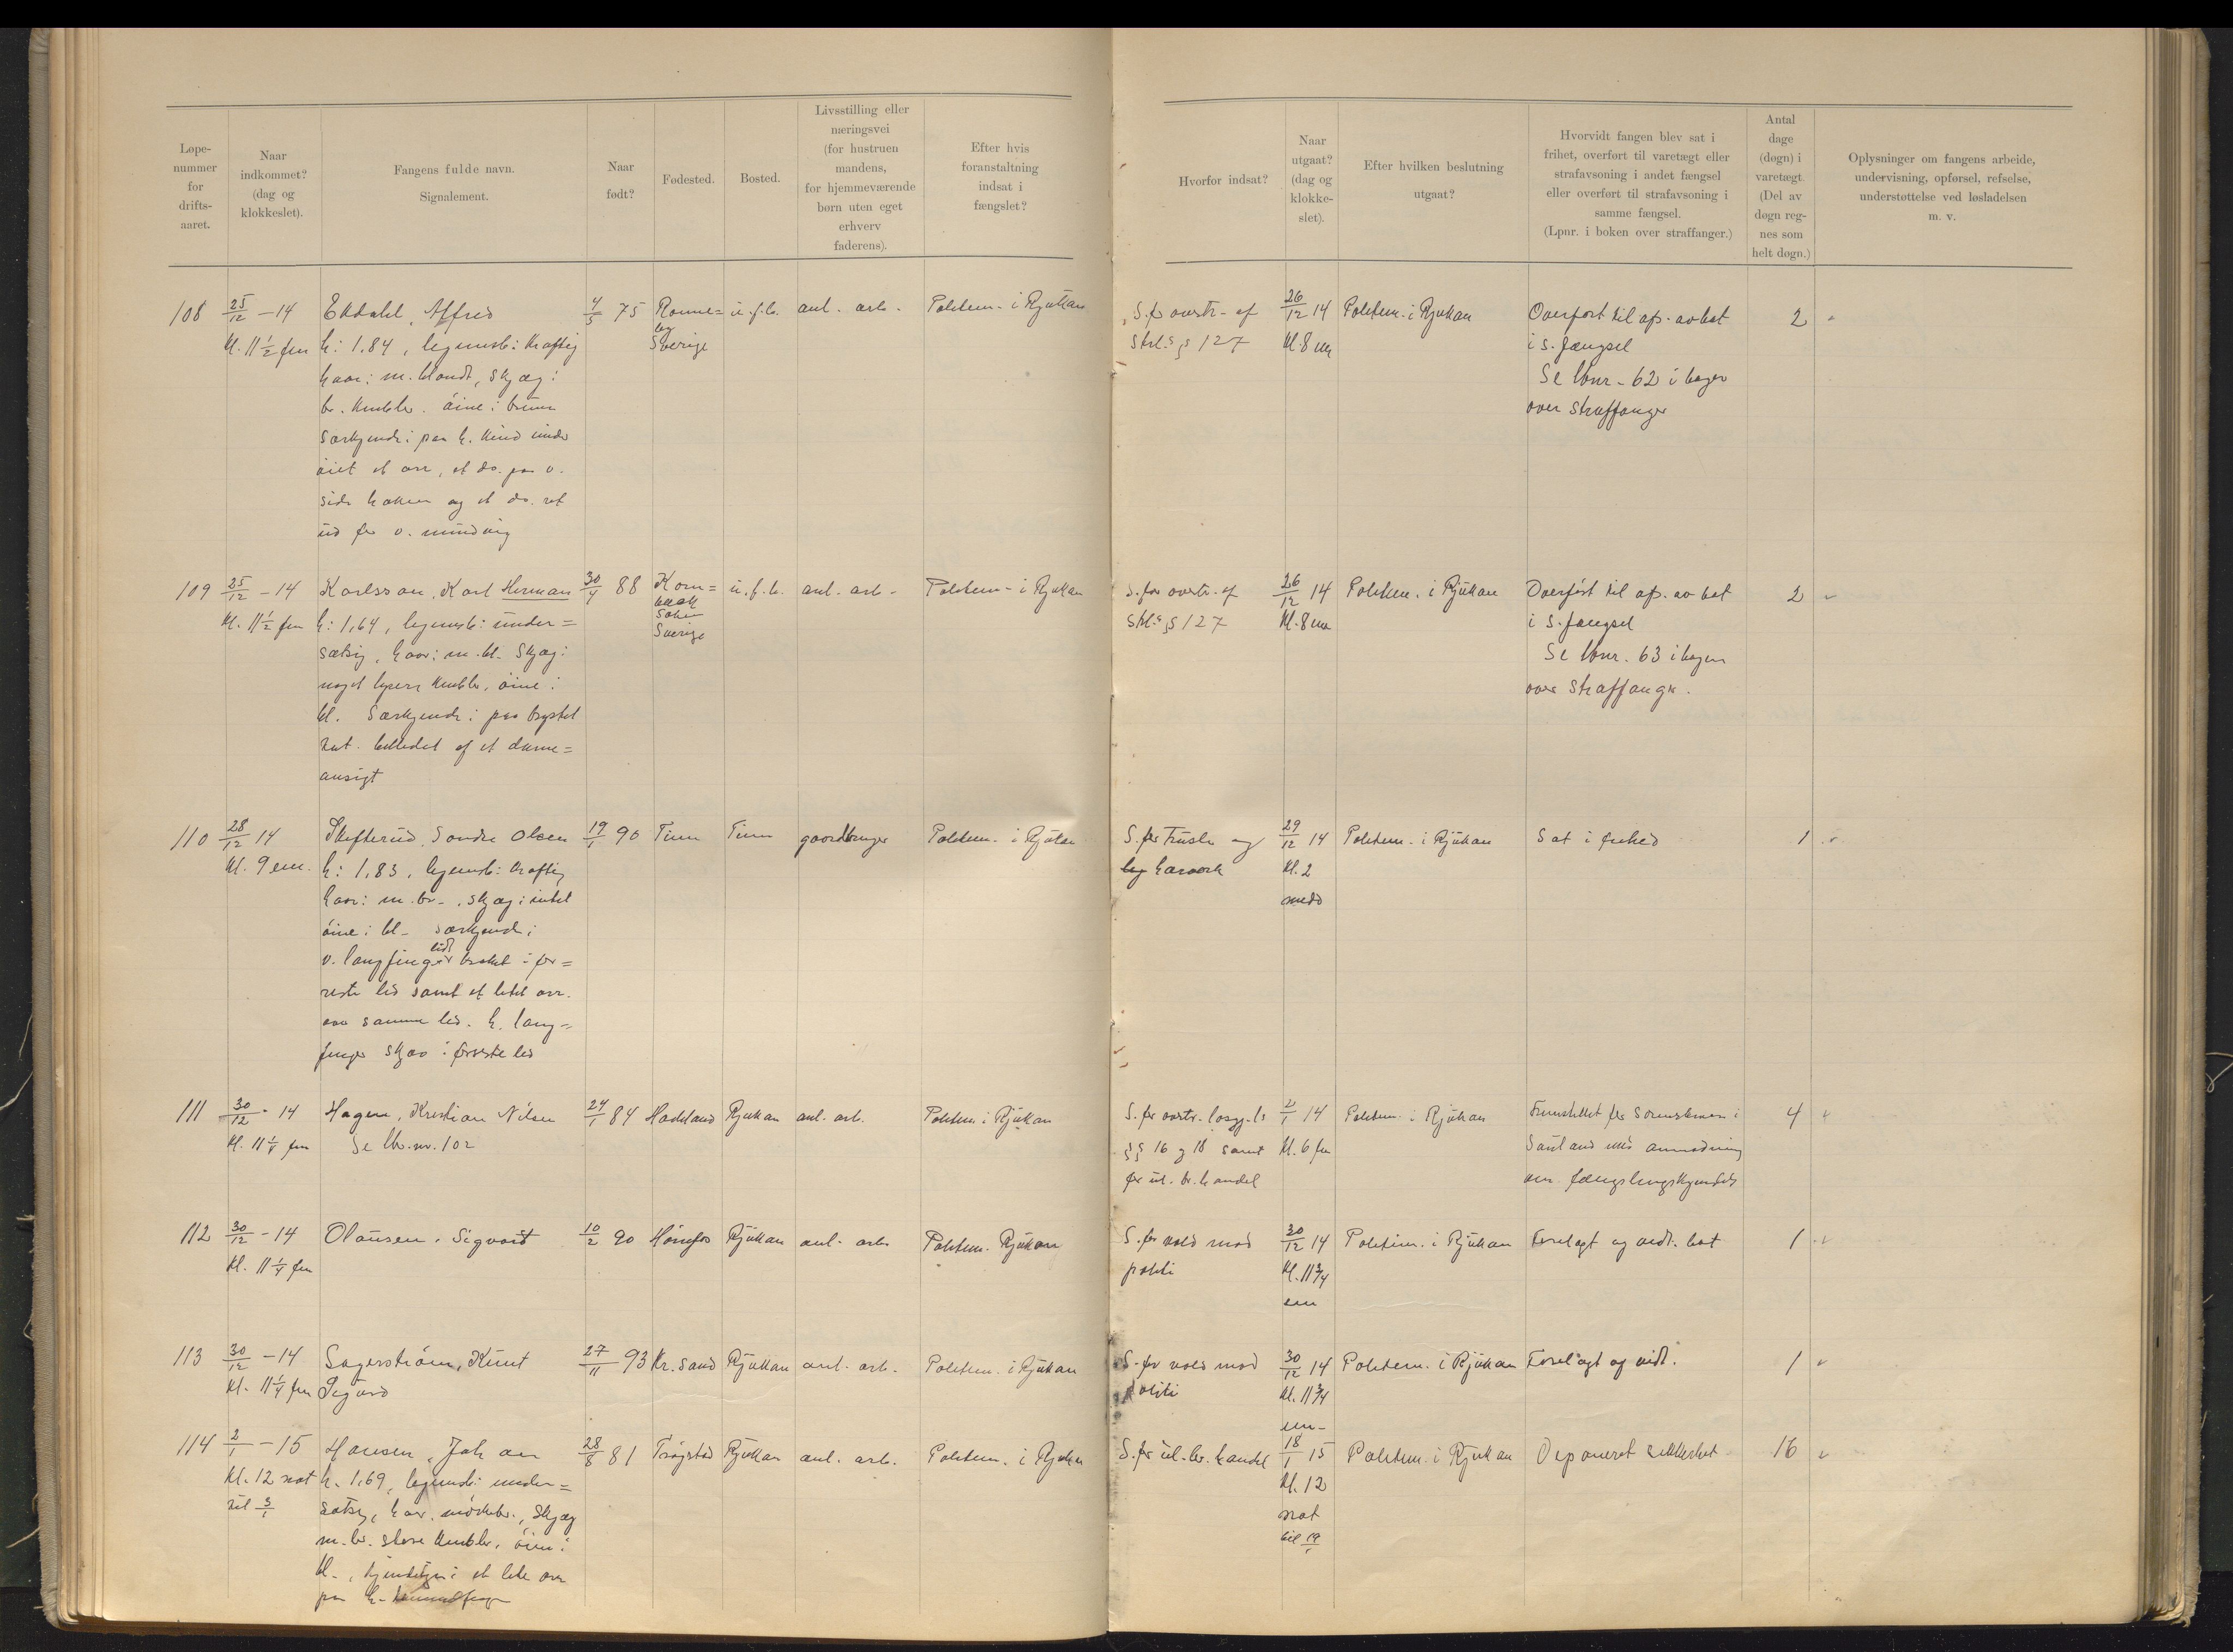 Løpe-
nummer
for
drifts-
aaret.
Naar
indkommet?
(dag og
klokkeslet).
Fangens fulde navn.
Signalement.
Naar
født?
Fødested.
Bosted.
Livsstilling eller
næringsvei
(for hustruen
mandens,
for hjemmeværende
børn uten eget
erhverv
faderens).
Efter hvis
foranstaltning
indsat i
fængslet?
Hvorfor indsat?
Naar
utgaat?
(dag og
klokke-
slet).
Efter hvilken beslutning
utgaat?
Hvorvidt fangen blev sat i
frihet, overført til varetægt eller
strafavsoning i andet fængsel
eller overført til strafavsoning i
samme fængsel.
(Lpnr. i boken over straffanger.)
Antal
dage
(døgn) i
varetægt.
(Del av
døgn reg-
nes som
helt døgn.)
Oplysninger om fangens arbeide,
undervisning, opførsel, refselse,
understøttelse ved løsladelsen
m. v.
108
25/12 - 14
Kl. 11 1/2 fm
Ekdahl, Alfred
h: 1,84, legemsb: kraftig
haar: m. blondt, skjæg:
br. knebler. øine: brune
Særkjende: paa h. kind under
øiet et arr, et do. paa v.
side haken og et do. ret
ud for v. mundvig
4/5 75
Ronne=
by
Sverige
u. f. b.
anl. arb.
Politiem. i Rjukan
S. for overtr. af
Strl.s § 127
26/12 14
Kl. 8 em
Politiem. i Rjukan
Overført til afs. av bot
i s. fængsel
Se lbnr. 62 i bogen
over straffanger
2
109
25/12 - 14
Kl. 11 1/2 fm
Karlsson, Karl Herman
h: 1,64, legemsb: under=
sætsig, haar: m. bl. Skjæg:
noget lysere knebler, øine:
bl. Særkjende: paa brystet
tat. billedet af et dame=
ansigt
30/4 88
Sverige
u. f. b.
anl. arb.
Politiem. i Rjukan
S. for overtr. af
Strl.s § 127
26/12 14
Kl. 8 em
Politiem. i Rjukan
Overført til afs. av bot
i s. fængsel
Se lbnr. 63 i bogen
over straffange.
2
110
28/12 14
Kl. 9 em.
Sondre Olsen
h: 1,83, legemsb: kraftig
haar: m. br., skjæg: intet
øine: bl. særkjende:
v. langfinger lidt brækket i for=
reste led samt et litet arr.
paa samme led. h. lang=
finger skjæv i første led
19/1 90
Tinn
Tinn
gaardbruger
Politiem. i Rjukan
S. for Trusler og
hærverk
29/12 14
Kl. 2
midd
Politiem. i Rjukan
Sat i frihed
1
111
30/12 - 14
Kl. 11 1/4 fm
Hagen, Kristian Nilsen
Se lbr. nr. 102
24/1 84
Hadeland
Rjukan
anl. arb.
Politiem i Rjukan
S. for overtr. løsgj. ls
§§ 16 og 18 samt
for ul. br. handel
2/1 14
Kl. 6 fm
Politiem. i Rjukan
Fremstillet for Sorenskriver i
Sauland med anmodning
om fængslingskjendelse
4
112
30/12 - 14
Kl. 11 1/4 fm
Olausen, Sigvart
10/2 90
Hønefos
Rjukan
anl. arb.
Politiem. Rjukan
S. for vold mod
politi
30/12 14
Kl. 11 3/4
em
Politiem. i Rjukan
Forelagt og vedt. bot
1
113
30/12 - 14
Kl. 11 1/4 fm
Sagerstrøm, Knut
Sigurd
27/11 93
Kr. sand
Rjukan
anl. arb.
Politiem. i Rjukan
S. for vold mod
politi
30/12 14
Kl. 11 3/4
em
Politiem. i Rjukan
Forelagt og vedt.
1
114
2/1 - 15
Kl. 12 nat
til 3/1
Hansen, Johan
h. 1,69, legemsb: under=
sætsig, haar. mørkebr., Skjæg
m. br. store knebler, øine:
bl., Kjendetegn: et lite arr
paa h.
28/8 81
Trøgstad
Rjukan
anl. arb.
Politiem. i Rjukan
S. for ul. br. handel
18/1 15
Kl. 12
nat
til 19/1
Politiem. i Rjukan
Deponeret sikkerhet
16